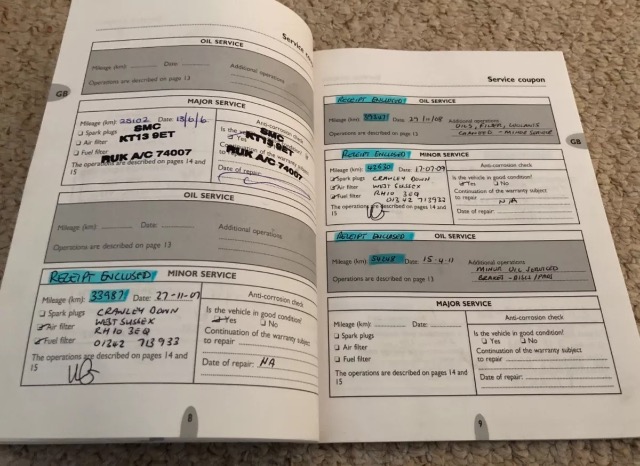 Service coupon
OIL SERVICE
Mileage (km): Date:
Additional operations
Operations are described on page 13
GB
MAJOR SERVICE
Mileage (km): 25102 Date: 13/6/6
Anti-corrosion check
❏ Spark plugs
❏ Air filter
❏ Fuel filter
SMC
KT13 9ET
RUK A/C 74007
Is the
Yes
SMC
KT13 9ET
RUK A/C 74007
Continuation of the warranty
Date of repair:
The operations are described on pages 14 and
15
OIL SERVICE
Mileage (km): Date:
Additional operations
Operations are described on page 13
RECEIPT ENCLOSED MINOR SERVICE
Mileage (km): 33987 Date: 27-11-07
Anti-corrosion check
❏ Spark plugs CRAWLEY DOWN
Is the vehicle in good condition?
❏ Air filter WEST SUSSEX
❏ Yes ❏ No
RH10 3EQ
❏ Fuel filter 01342 713933
Continuation of the warranty subject
to repair
The operations are described on pages 14 and
15
Date of repair: NA
8
Service coupon
RECEIPT ENCLOSED OIL SERVICE
Mileage (km): Date: 27/11/08
Additional operations
OILS, FILTER,
CHANGED - MINOR SERVICE
Operations are described on page 13
GB
RECEIPT ENCLOSED MINOR SERVICE
Mileage (km): Date: 17-07-09
Anti-corrosion check
❏ Spark plugs CRAWLEY DOWN
Is the vehicle in good condition?
❏ Air filter WEST SUSSEX
❏ Yes ❏ No
RH10 3EQ
❏ Fuel filter 01342 713933
Continuation of the warranty subject
to repair N/A
The operations are described on pages 14 and
15
Date of repair:
RECEIPT ENCLOSED OIL SERVICE
Mileage (km): Date: 15-4-11
Additional operations
MINOR OIL SERVICED
Operations are described on page 13
MAJOR SERVICE
Mileage (km): Date:
Anti-corrosion check
❏ Spark plugs
Is the vehicle in good condition?
❏ Air filter
❏ Yes ❏ No
❏ Fuel filter
Continuation of the warranty subject
to repair
The operations are described on pages 14 and
15
Date of repair:
9